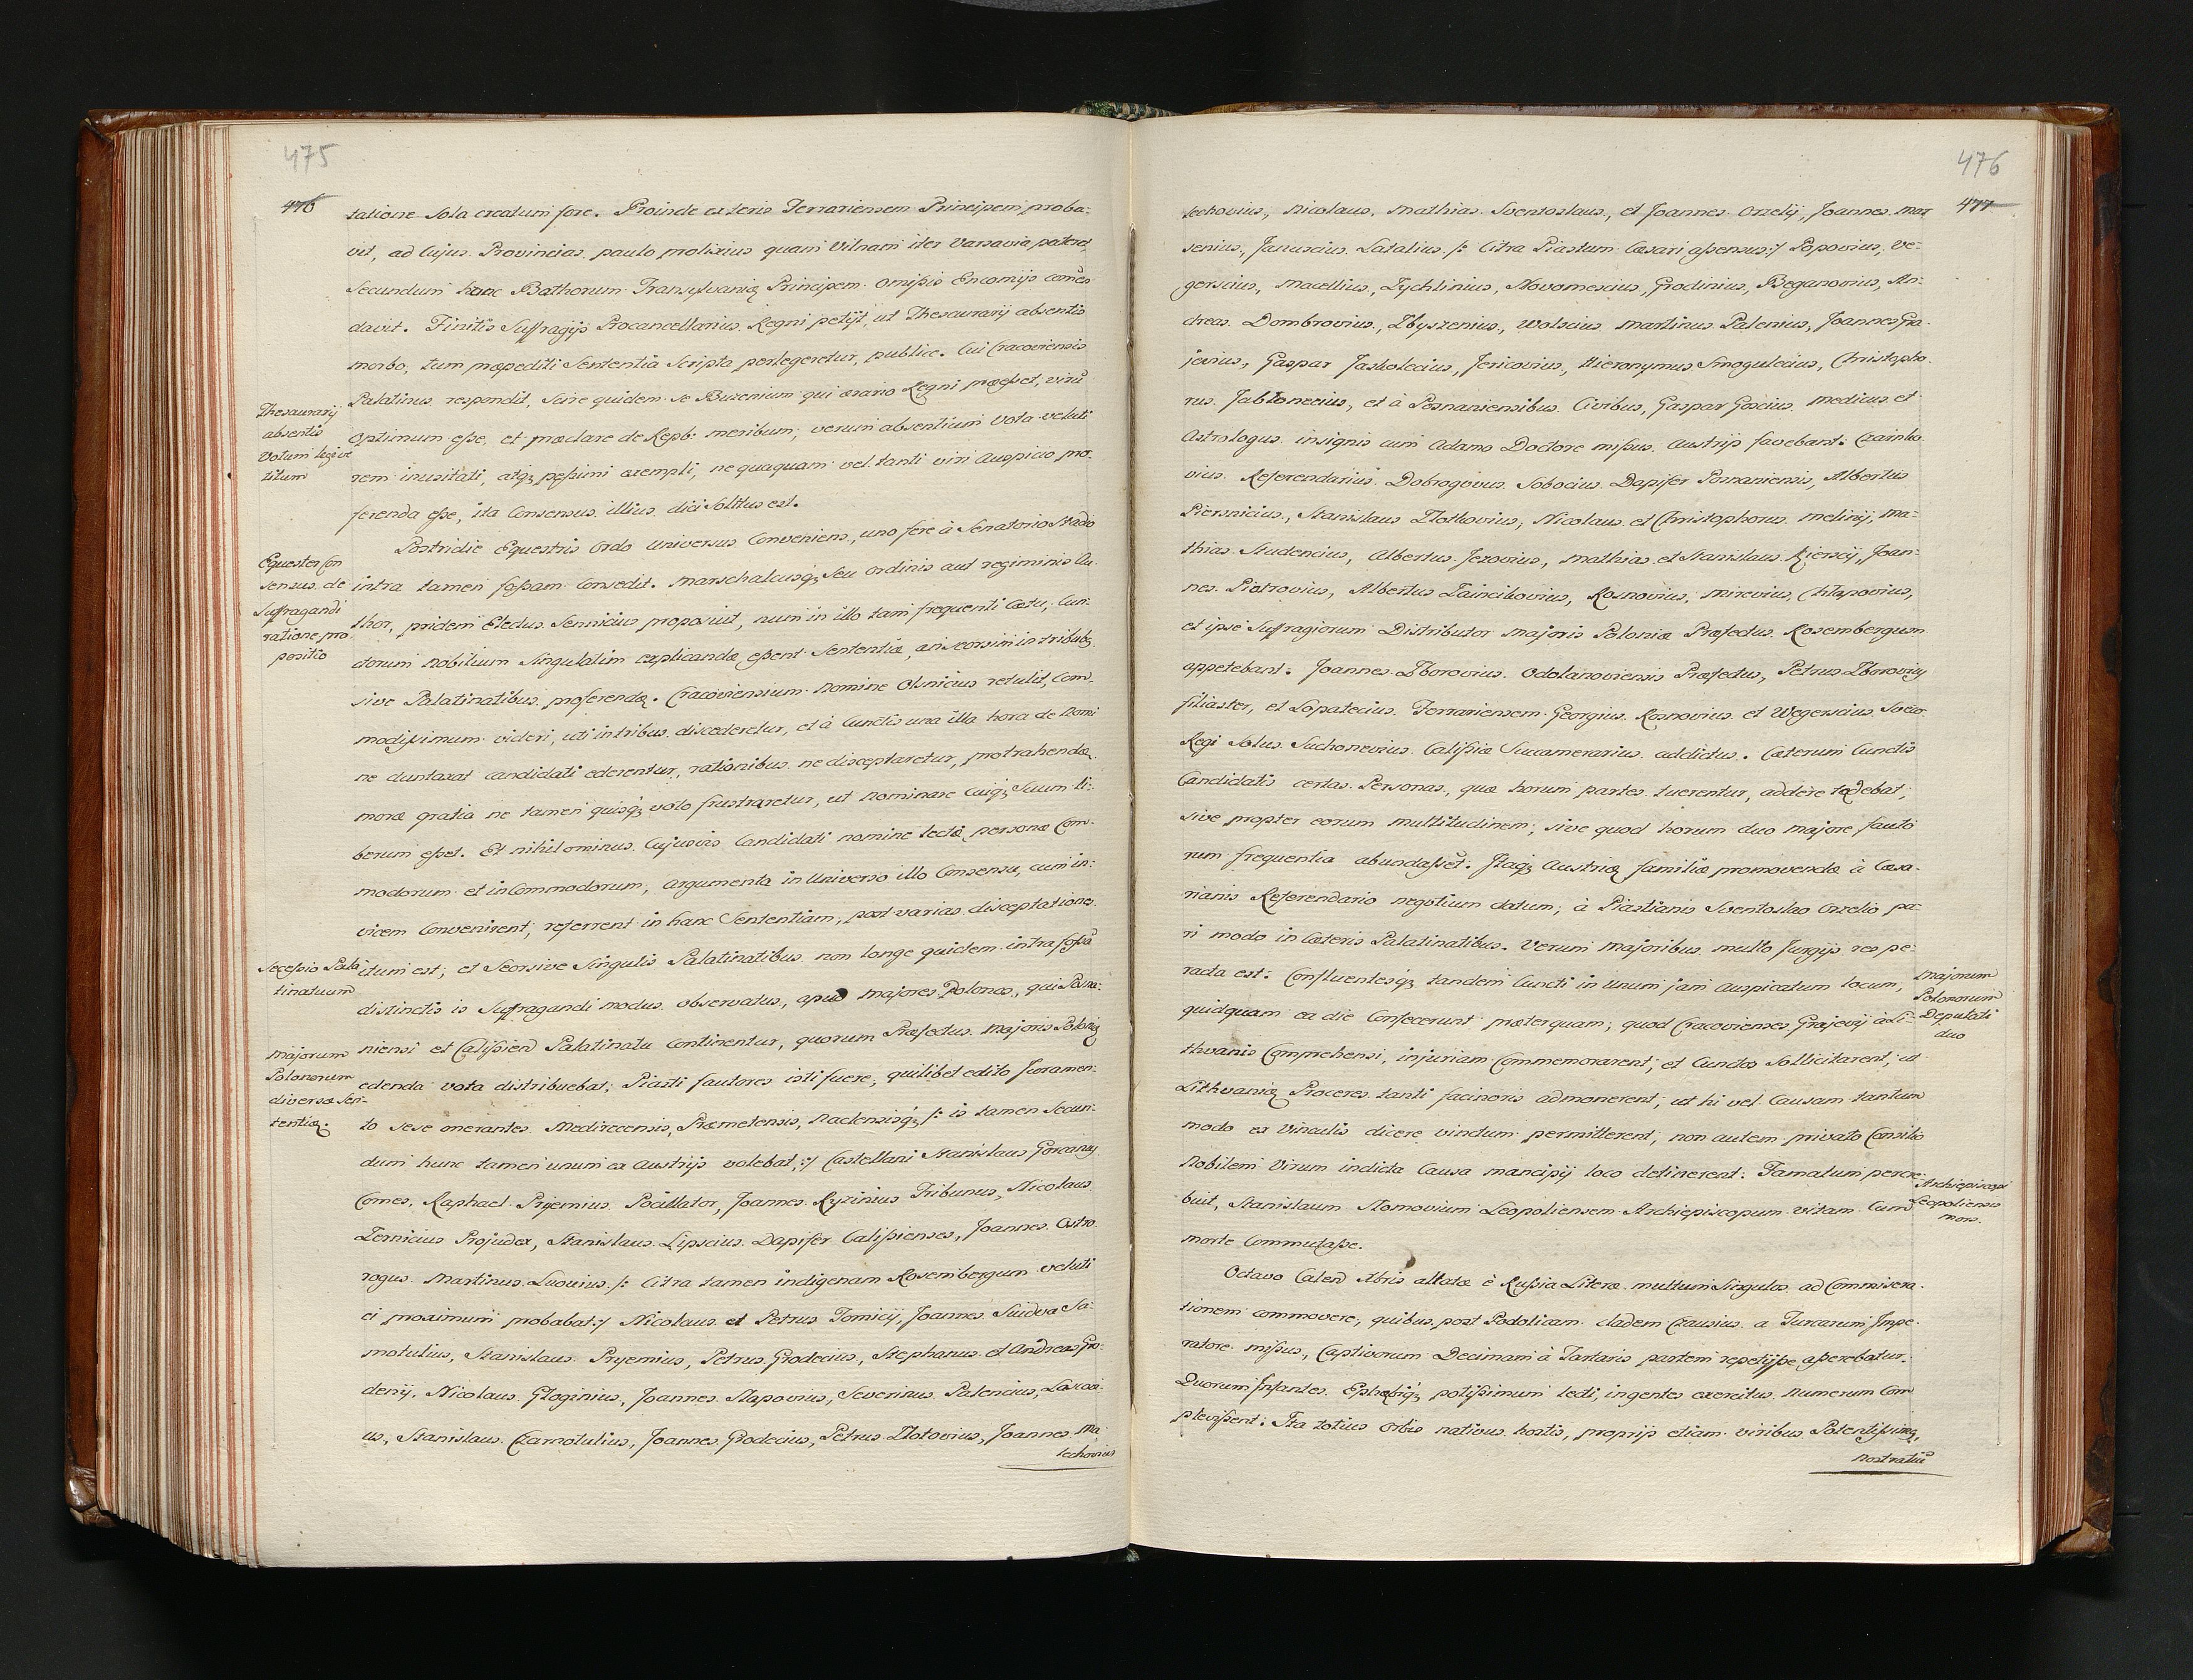 475
476
tatione sola creatum fore. Proinde exteris Ferrariensem Principem proba-
vit, ad cujus Provincias paulo prolixius quam Vilnam iter Varsavia pateret
Secundum hunc Bathorum Transylvaniæ Principem omissis Encomijs com̃en
davit. Finitis Suffragijs Procancellarius Regni petijt, ut Thesaurarij absentis
morbo, tum præpediti Sententia Scripta perlegeretur, publice. Cui Cracoviensis
Palatinus respondit, scire quidem se Buzenium qui ærario Regni præesset, virũ
optimum esse, et præclare de Repb: meritum; verum absentium vota veluti
rem inusitati, atq; pessimi exempli, ne quaquam vel tanti viri Auspicio pro-
ferenda esse, ita Consensus illius dici Solitus est.
Thesaurarij
absentis
Votum legi ve
titum
Postridie Equestris Ordo Universus Conveniens, uno fere à Senatorio Stadio
intra tamen fossam Consedit. Marschalcusq; seu Ordinis aut regiminis Au-
thor, pridem Electus Sennicius proposuit, num in illo tam frequenti Cœtu, Cun-
ctorum Nobilium Singulatim explicandæ essent Sententiæ, an seorsim in tribubq
sive Palatinatibus proferendæ. Cracoviensium Nomine Olsnicius retulit, Com-
modissimum videri, uti in tribus discederetur, et à Cunctis una illa hora de Nomi
ne duntaxat candidati ederentur, rationibus ne disceptaretur, protrahendæ
moræ gratia ne tamen quisq; voto frustraretur, ut Nominare Cuiq; Suum li-
berum esset. Et nihilominus Cujusvis Candidati nomine lectæ personæ Com-
modorum et inCommodorum, argumenta in Universo illo Consensu, cum in-
vicem Convenirent, referrent in hanc Sententiam, post varias disceptationes
itum est; et Seorsive Singulis Palatinatibus non longe quidem intra fossã
distinctis is Suffragandi modus observatus, apud Majores Polonos, qui Posna-
niensi et Calissien̄ Palatinatu Continentur, quorum Præfectus Majoris Poloniæ
edenda vota distribuebat; Piasti fautores isti fuere, quilibet edito Juramen-
to sese onerantes. Medirecensis, Præmetensis, Naclensisq; /: is tamen Secun-
dum hunc tamen unum ex Austrijs volebat, :/ Castellani Stanislaus Gorcaniq
Comes, Raphael Prijemius Pocillator, Joannes Ryzinius Tribunus, Nicolaus
Ternicius Projudex, Stanislaus Lipscius Dapifer Calissienses, Joannes Ostro
rogus Martinus Lvovius /: Citra tamen indigenam Rosembergum veluti
ei proximum probabat :/ Nicolaus et Petrus Tomicij, Joannes Suidva Sa-
motulius, Stanislaus Pryemius, Petrus Grodecius, Stephanus et Andreas Gro-
denij, Nicolaus Gloginius, Joannes Slapovius, Severinus Palencius, Lascoci
us, Stanislaus Czarnotulius, Joannes Grodecius, Petrus Zlotovius, Joannes Ma
lechovius
Equester Con
sensus de
Suffragandi
ratione pro
positio
Secessio Pala
tinatuum
Majorum
Polonorum
diversæ Sen-
tentiæ.
476
477
lechovius, Nicolaus, Mathias Sventoslaus, et Joannes Orzelij, Joannes Mar
senius, Januscius Latalius /: Citra Piastum Cæsari assensus :/ Popovius, Ve-
gerscius, Macellius, Zychlinius, Novomescius, Grodinius, Beganovius, An-
dreas Dombrovius, Zbyszenius, Wolscius Martinus Palenius, Joannes Gra-
jevius, Gaspar Jaskolecius, Jericovius, Hieronymus Smogulecius, Christopho-
rus Jablonecius, et à Posnaniensibus Civibus, Gaspar Goscius Medicus et
Astrologus insignis cum Adamo Doctore missus. Austrijs favebant: Czarnko
vius Referendarius Dobrogovus Sobocius Dapifer Posnaniensis, Albertus
Piersnicius, Stanislaus Zlotkovius, Nicolaus et Christophorus Melinij, Ma-
thias Studencius, Albertus Jezovius, Mathias et Stanislaus Kierscij, Joan-
nes Piotrovius, Albertus Zaincikovius, Rosnovius, Mirevius, Chlapovius,
et ipse Suffragiorum Distributor Majoris Poloniæ Præfectus. Rosembergum
appetebant: Joannes Zborovius Odolanoviensis Præfectus, Petrus Zborovieq
filiaster, et Lopatecius. Ferrariensem Georgius Rosnovius et Wegerscius Sveco
Regi Solus Suchonevius Calissiæ Succamerarius addictus. Cæterum Cunctis
Candidatis certas Personas, quæ horum partes tuerentur, addere tædebat;
sive propter eorum multitudinem, sive quod horum duo majore fauto
rum frequentia abundasset. Itaq; Austriæ familiæ promovendæ à Cæsa-
rianis Referendario negotium datum, à Piastianis Sventoslao Orzelio pa-
ri modo in Cæteris Palatinatibus. Verum Majoribus multo Jurgijs res pe-
racta est: Confluentesq; tandem Cuncti in unum jam Auspicatum locum,
quidquam ea die Confecerunt præterquam, quod Cracovienses Grajevij à Li-
thvanis Comprehensi, injuriam Commemorarent, et Cunctos Sollicitarent, ut
Lithvaniæ Proceres tanti facinoris admonerent, ut hi vel Causam tantum
modo ex Vinculis dicere vinctum permitterent, non autem privato Consilio
Nobilem Virum indicta Causa mancipij loco detinerent: Famatum percre-
buit, Stanislaum Slomovium Leopoliensem Archiepiscopum vitam Cum
morte Commutasse.
Majorum
Polonorum
Deputati
duo
Archiepiscopi
Leopoliensis
mors.
Octavo Calend Xbris allatæ è Russia Literæ multum Singulos ad Commisera-
tionem commovere, quibus post Podolicam cladem Czausius a Turcarum Impe-
ratore missus, Captivorum Decimam à Tartaris partem repetijsse asserebatur.
Quorum Infantes Ephebiq; potissimum lecti, ingentes exercitus Numerum Com
plevissent: Ita totius Orbis nativus hostis, proprijs etiam viribus Potentissimq,
Nostratiũ